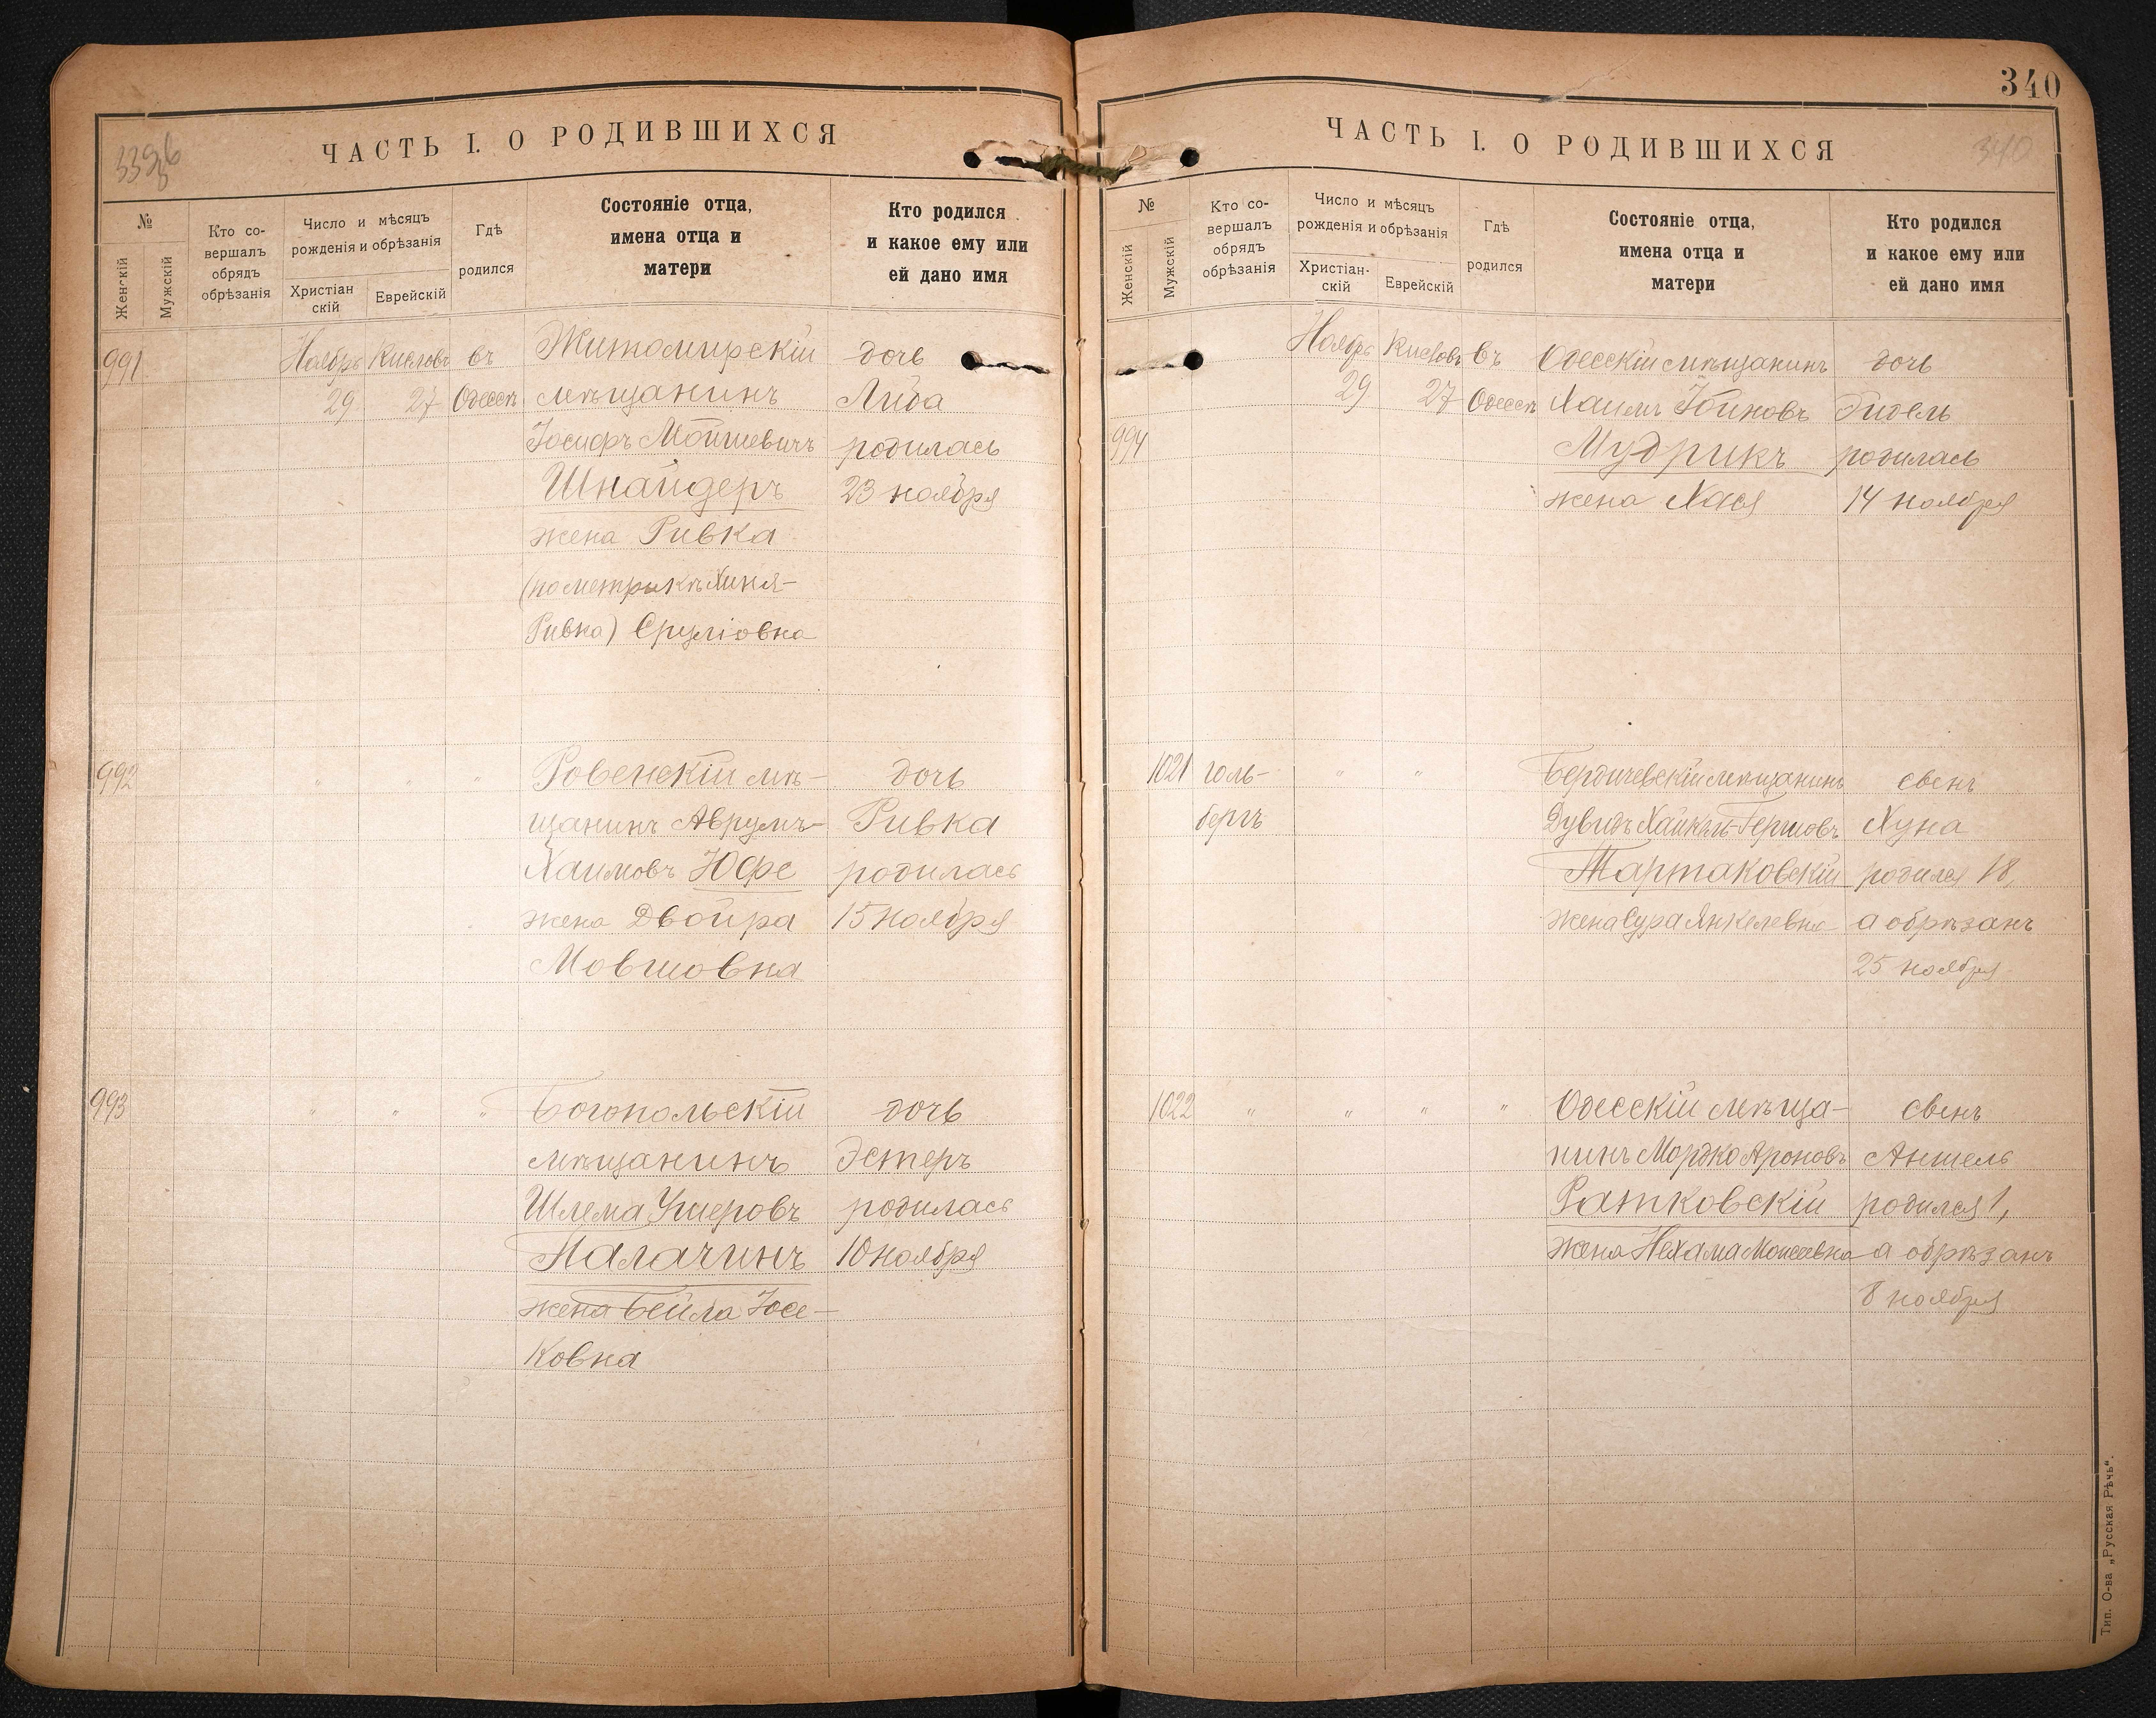 339б
ЧАСТЬ I. О РОДИВШИХСЯ
№
Женскій
Мужскій
Кто со-
вершалъ
обрядъ
обрѣзанія
Число и мѣсяцъ
рожденія и обрѣзанія
Христіан
скій
Еврейскій
Гдѣ
родился
Состояніе отца,
имена отца и
матери
Кто родился
и какое ему или
ей дано имя
991 Ноябрь Кислевъ въ Житомирскій дочь
29 27 Одессѣ мѣщанинъ Либа
Іосифъ Мошкевичъ родилась
Шнайдеръ 23 ноября
жена Ривка
(по метрикѣ Хиня-
Ривка) Сруліовна
992 " " " Ровенскій мѣ- дочь
щанинъ Аврумъ- Ривка
Хаимовъ Юфе родилась
жена Двойра 15 ноября
Мовшовна
993 " " " Богопольскій дочь
мѣщанинъ Эстеръ
Шлема Ушеровъ родилась
Палачинъ 10 ноября
жена Бейла Іосе-
ковна
340
ЧАСТЬ I. О РОДИВШИХСЯ
340
№
Женскій
Мужскій
Кто со-
вершалъ
обрядъ
обрѣзанія
Число и мѣсяцъ
рожденія и обрѣзанія
Христіан-
скій
Еврейскій
Гдѣ
родился
Состояніе отца,
имена отца и
матери
Кто родился
и какое ему или
ей дано имя
Ноябрь Кислевъ въ Одесскій мѣщанинъ дочь
29 27 Одессѣ Хаимъ
994 Мудрикъ родилась
жена Хася 14 ноября
1021 Голь- " " Бердичевскій мѣщанинъ сынъ
бергъ Дувидъ Хайкель-Гершовъ Хуна
Тартаковскій родился 18,
жена Сура Янкелевна а обрѣзанъ
25 ноября
1022 " " " " Одесскій мѣща- сынъ
нинъ Мордко Ароновъ Аншель
Ратковскій родился 1,
жена Нехама Моисеевна а обрѣзанъ
8 ноября
Тип. О-ва „Русская Рѣчь“.